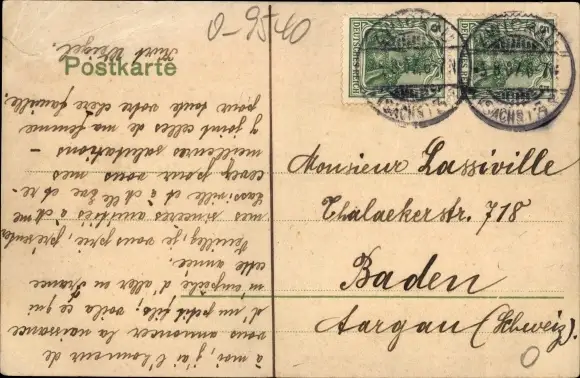 0-9540
Postkarte
DEUTSCHES REICH
DEUTSCHES REICH
(SACHS.)
(SACHS.)
Monsieur Lassiville
Thalackerstr. 718
Baden
Aargau (Schweiz).
à moi, j'ai l'honneur de
vous annoncer la naissance
d'un petit fils; voila ce qui
m'empêche d'aller en France
cette année.
Veuillez, je vous prie, présenter
mes sincères amitiés à Mme
Lassiville et à Mlle Eve et re-
cevez pour vous mes
meilleures salutations -
J'y joint celles de ma femme
pour toute votre chère famille.
Kurt Weigel.